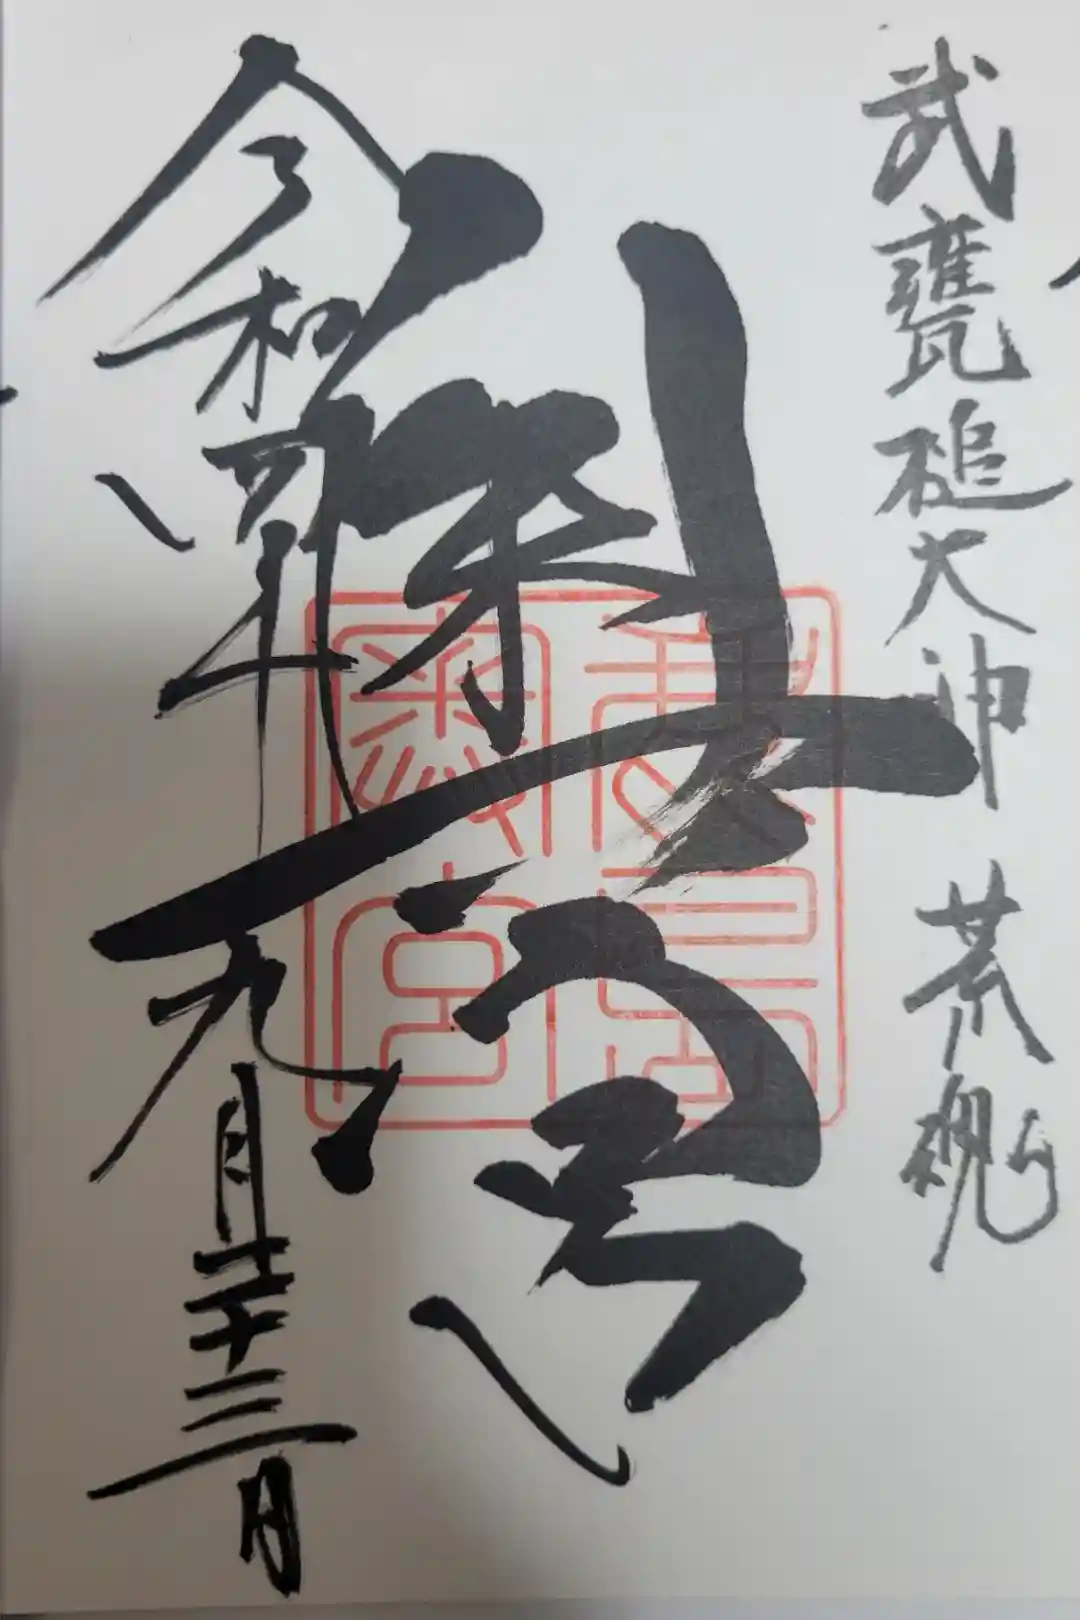 武甕槌大神 荒魂
奥宮
令和四年九月二十三日